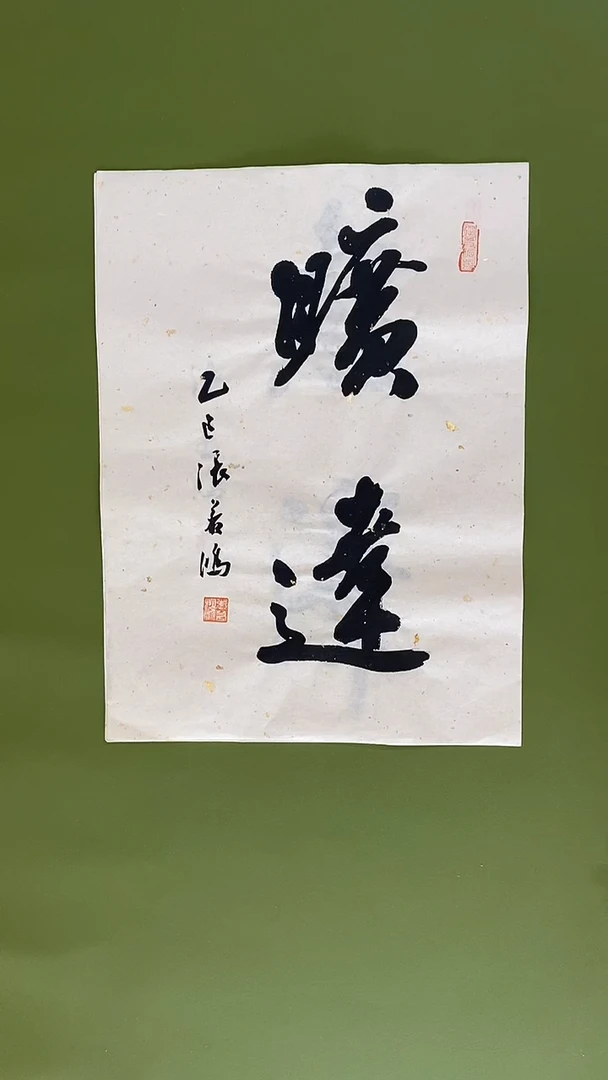 曠達
乙巳張若鴻